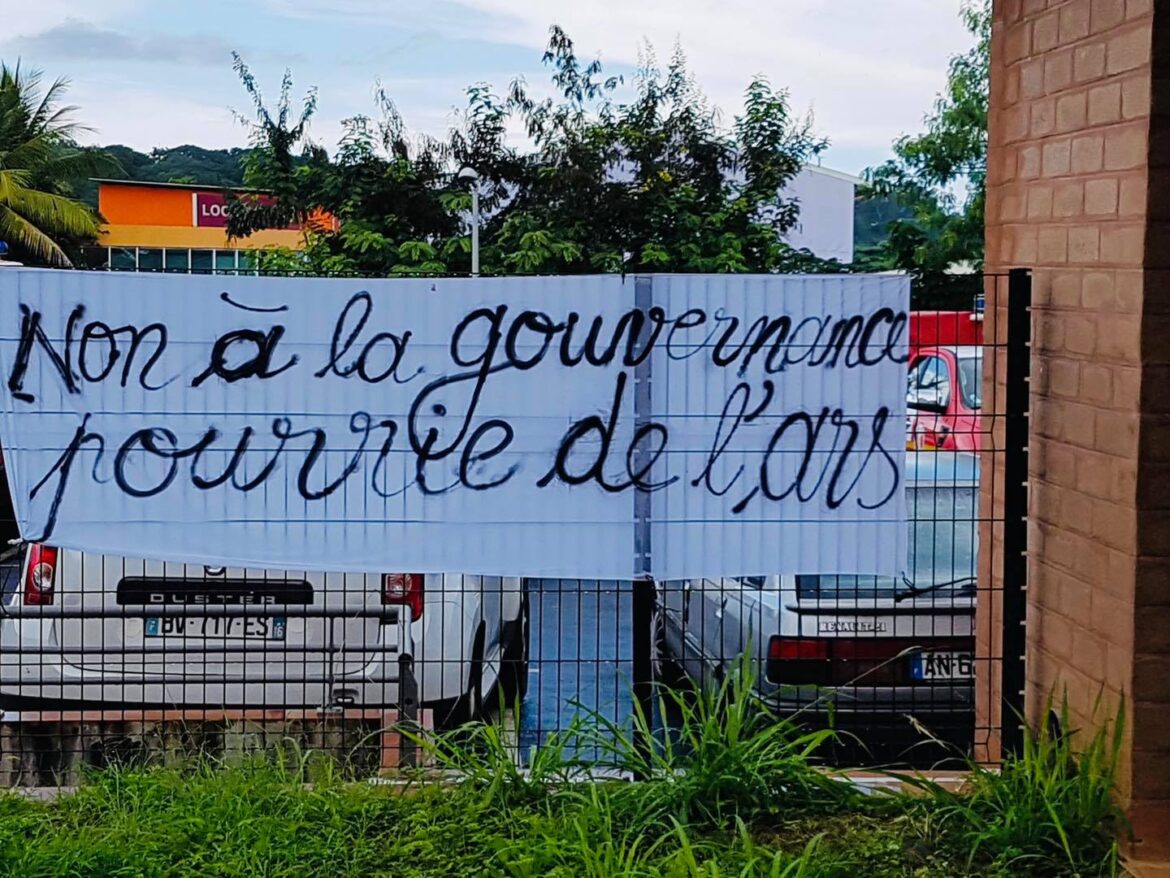 LOC
Non à la gouvernance
pourrie de l'ars
DUSTER
BV-717-ES
F
16
RENAULT 21
F
AN-6